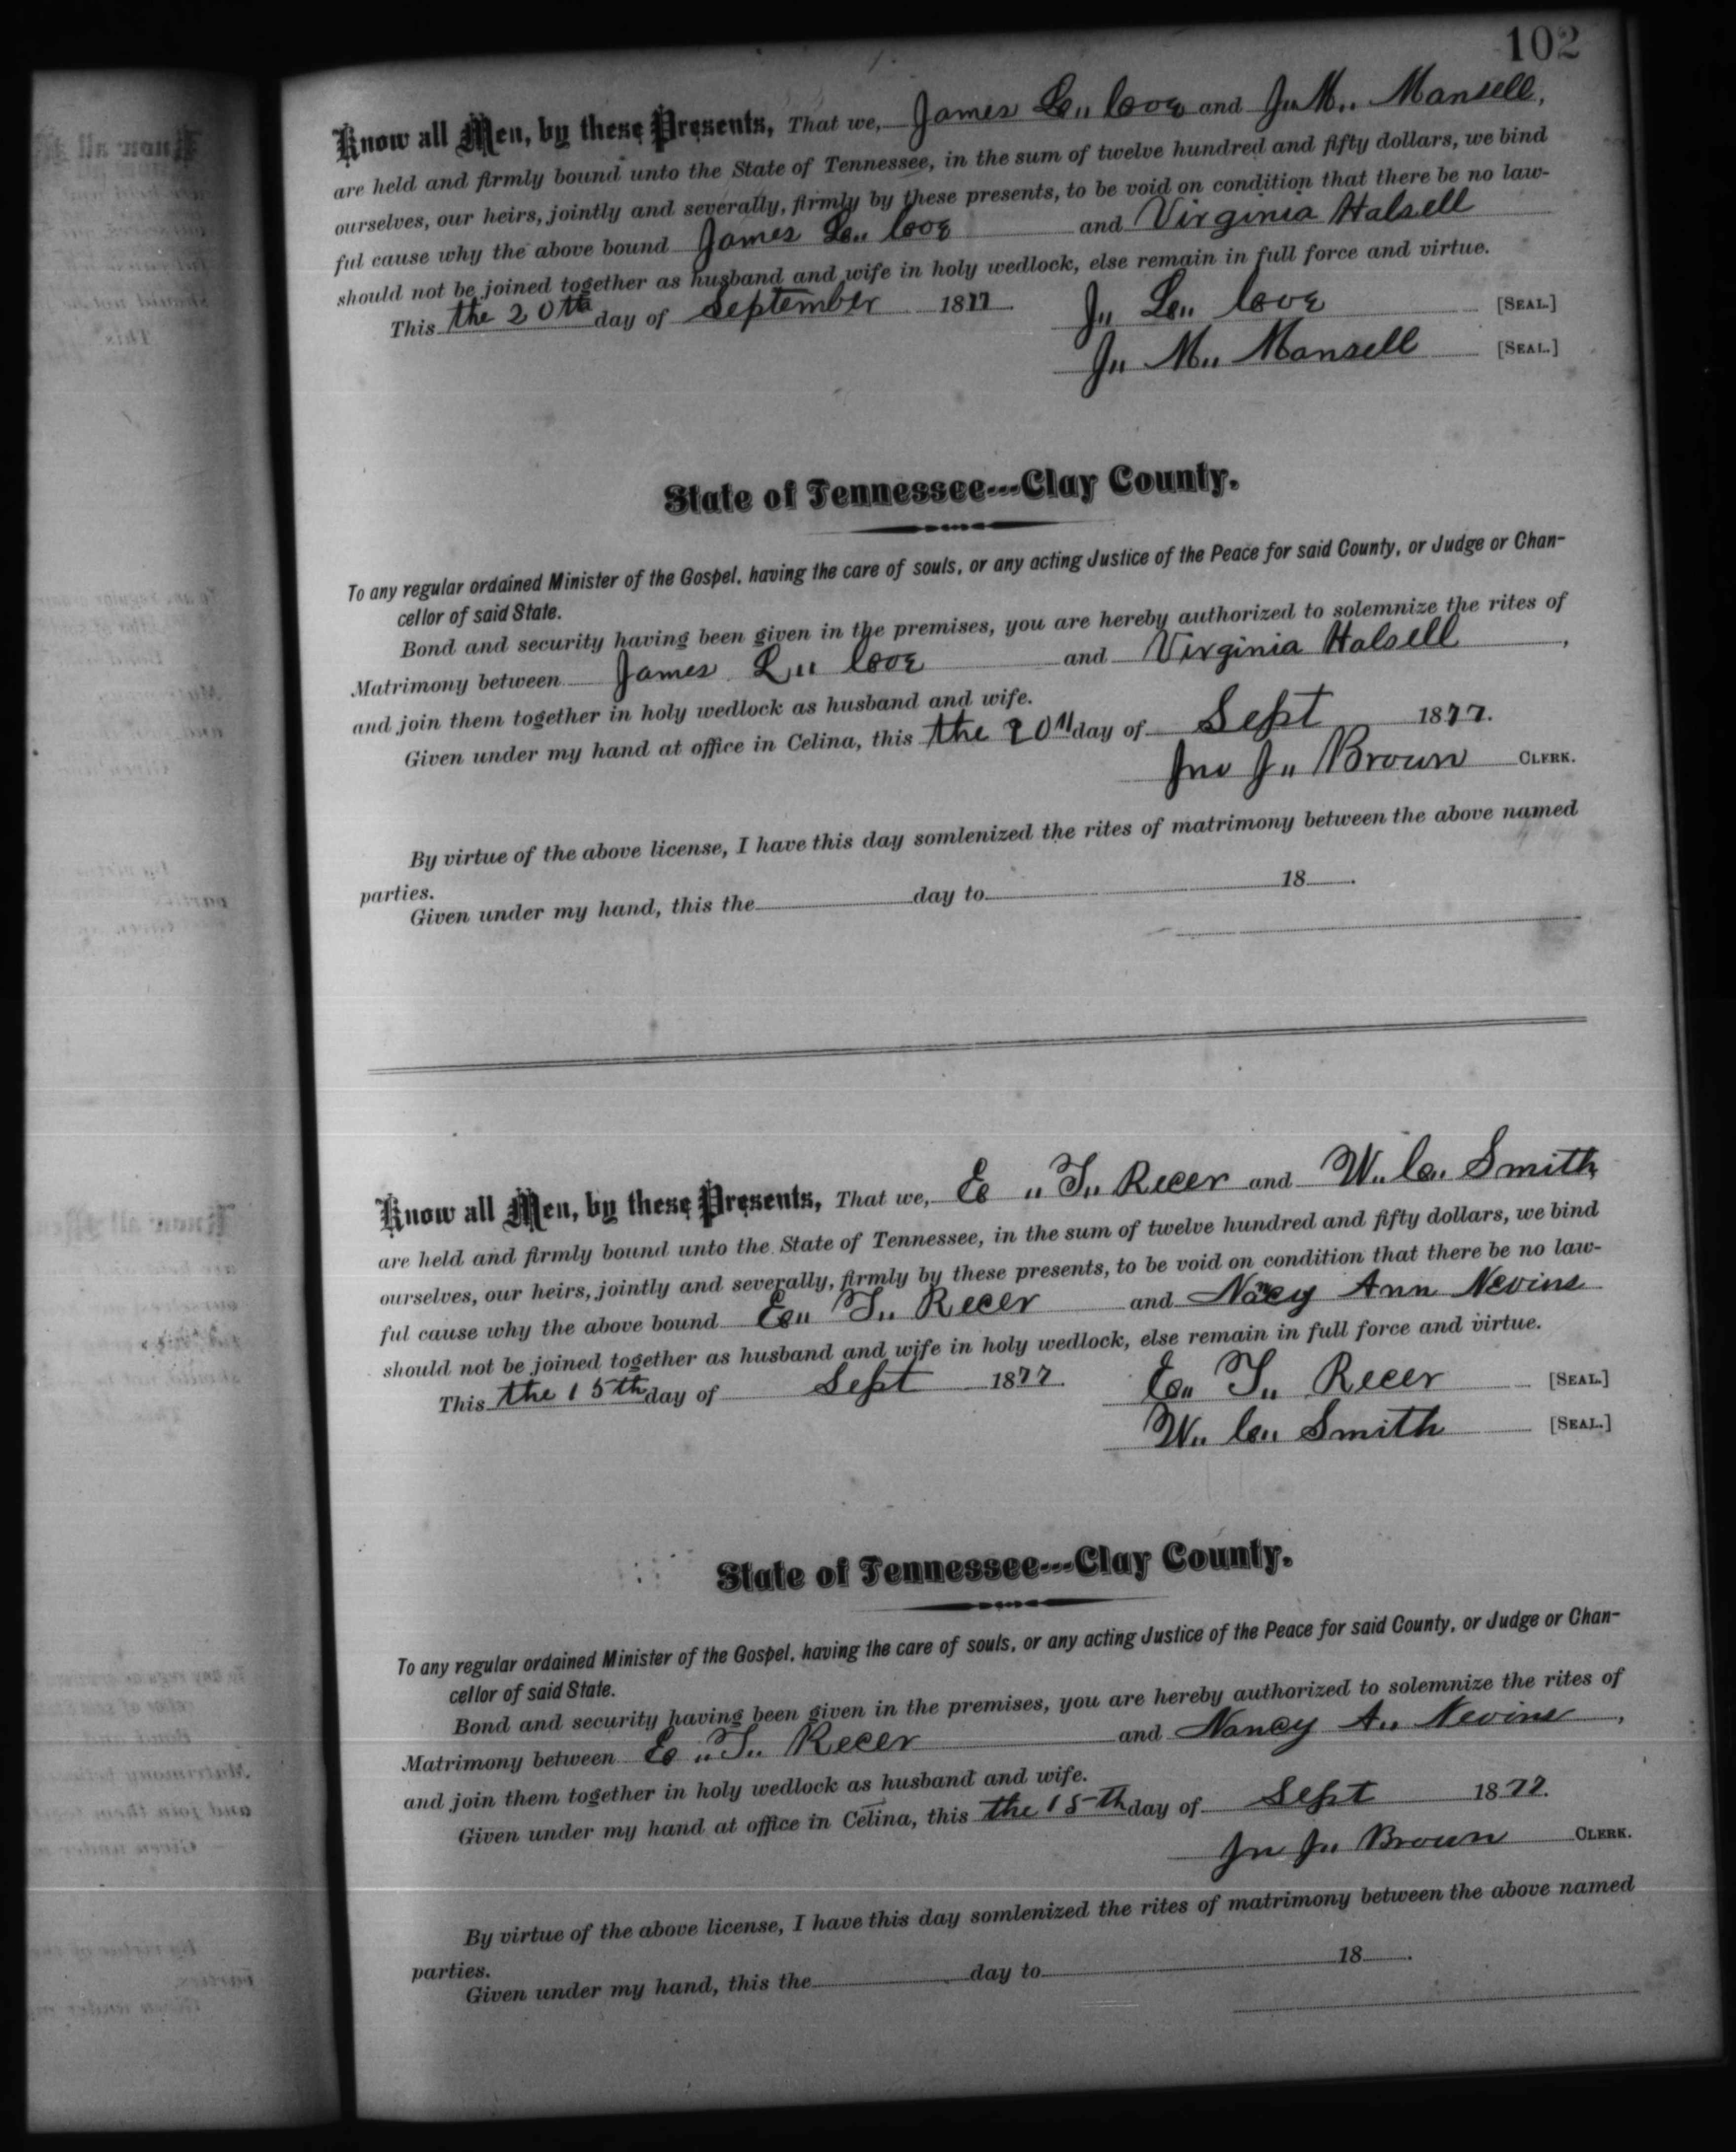 102
Know all Men, by these Presents, That we, James L. Cove and J. M. Mansell,
are held and firmly bound unto the State of Tennessee, in the sum of twelve hundred and fifty dollars, we bind
ourselves, our heirs, jointly and severally, firmly by these presents, to be void on condition that there be no law-
ful cause why the above bound James L. Cove and Virginia Halsell
should not be joined together as husband and wife in holy wedlock, else remain in full force and virtue.
This the 20th day of September 1877
J. L. Cove [SEAL.]
J. M. Mansell [SEAL.]
State of Tennessee---Clay County.
To any regular ordained Minister of the Gospel, having the care of souls, or any acting Justice of the Peace for said County, or Judge or Chan-
cellor of said State.
Bond and security having been given in the premises, you are hereby authorized to solemnize the rites of
Matrimony between James L. Cove and Virginia Halsell,
and join them together in holy wedlock as husband and wife.
Given under my hand at office in Celina, this the 20th day of Sept 1877.
Jno J. Brown CLERK.
By virtue of the above license, I have this day somlenized the rites of matrimony between the above named
parties.
Given under my hand, this the day to 18 .
Know all Men, by these Presents, That we, E. T. Recer and W. C. Smith,
are held and firmly bound unto the State of Tennessee, in the sum of twelve hundred and fifty dollars, we bind
ourselves, our heirs, jointly and severally, firmly by these presents, to be void on condition that there be no law-
ful cause why the above bound E. T. Recer and Nancy Ann Nevins
should not be joined together as husband and wife in holy wedlock, else remain in full force and virtue.
This the 15th day of Sept 1877
E. T. Recer [SEAL.]
W. C. Smith [SEAL.]
State of Tennessee---Clay County.
To any regular ordained Minister of the Gospel, having the care of souls, or any acting Justice of the Peace for said County, or Judge or Chan-
cellor of said State.
Bond and security having been given in the premises, you are hereby authorized to solemnize the rites of
Matrimony between E. T. Recer and Nancy A. Nevins,
and join them together in holy wedlock as husband and wife.
Given under my hand at office in Celina, this the 15th day of Sept 1877.
Jn J. Brown CLERK.
By virtue of the above license, I have this day somlenized the rites of matrimony between the above named
parties.
Given under my hand, this the day to 18 .